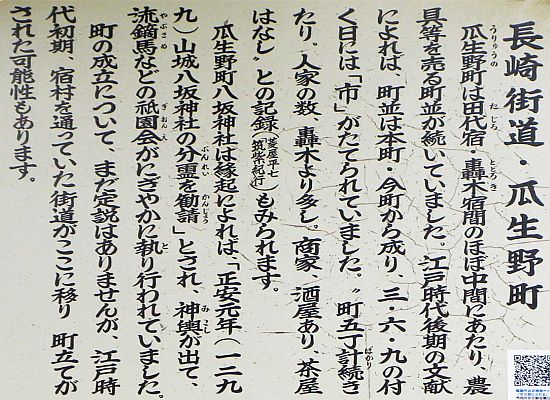 長崎街道・瓜生野町
瓜生野町は田代宿・轟木宿間のほぼ中間にあたり、農
具等を売る町並が続いていました。江戸時代後期の文献
によれば、町並は本町・今町から成り、三・六・九の付
く日には「市」がたてられていました。〝町五丁計続き
たり。人家の数、轟木より多し。商家・酒屋あり、茶屋
はなし〟との記録(菱屋平七筑紫紀行)もみられます。
瓜生野町八坂神社は縁起によれば「正安元年(一二九
九)山城八坂神社の分霊を勧請」とされ、神輿が出て、
流鏑馬などの祇園会がにぎやかに執り行われていました。
町の成立について、まだ定説はありませんが、江戸時
代初期、宿村を通っていた街道がここに移り 町立てが
された可能性もあります。